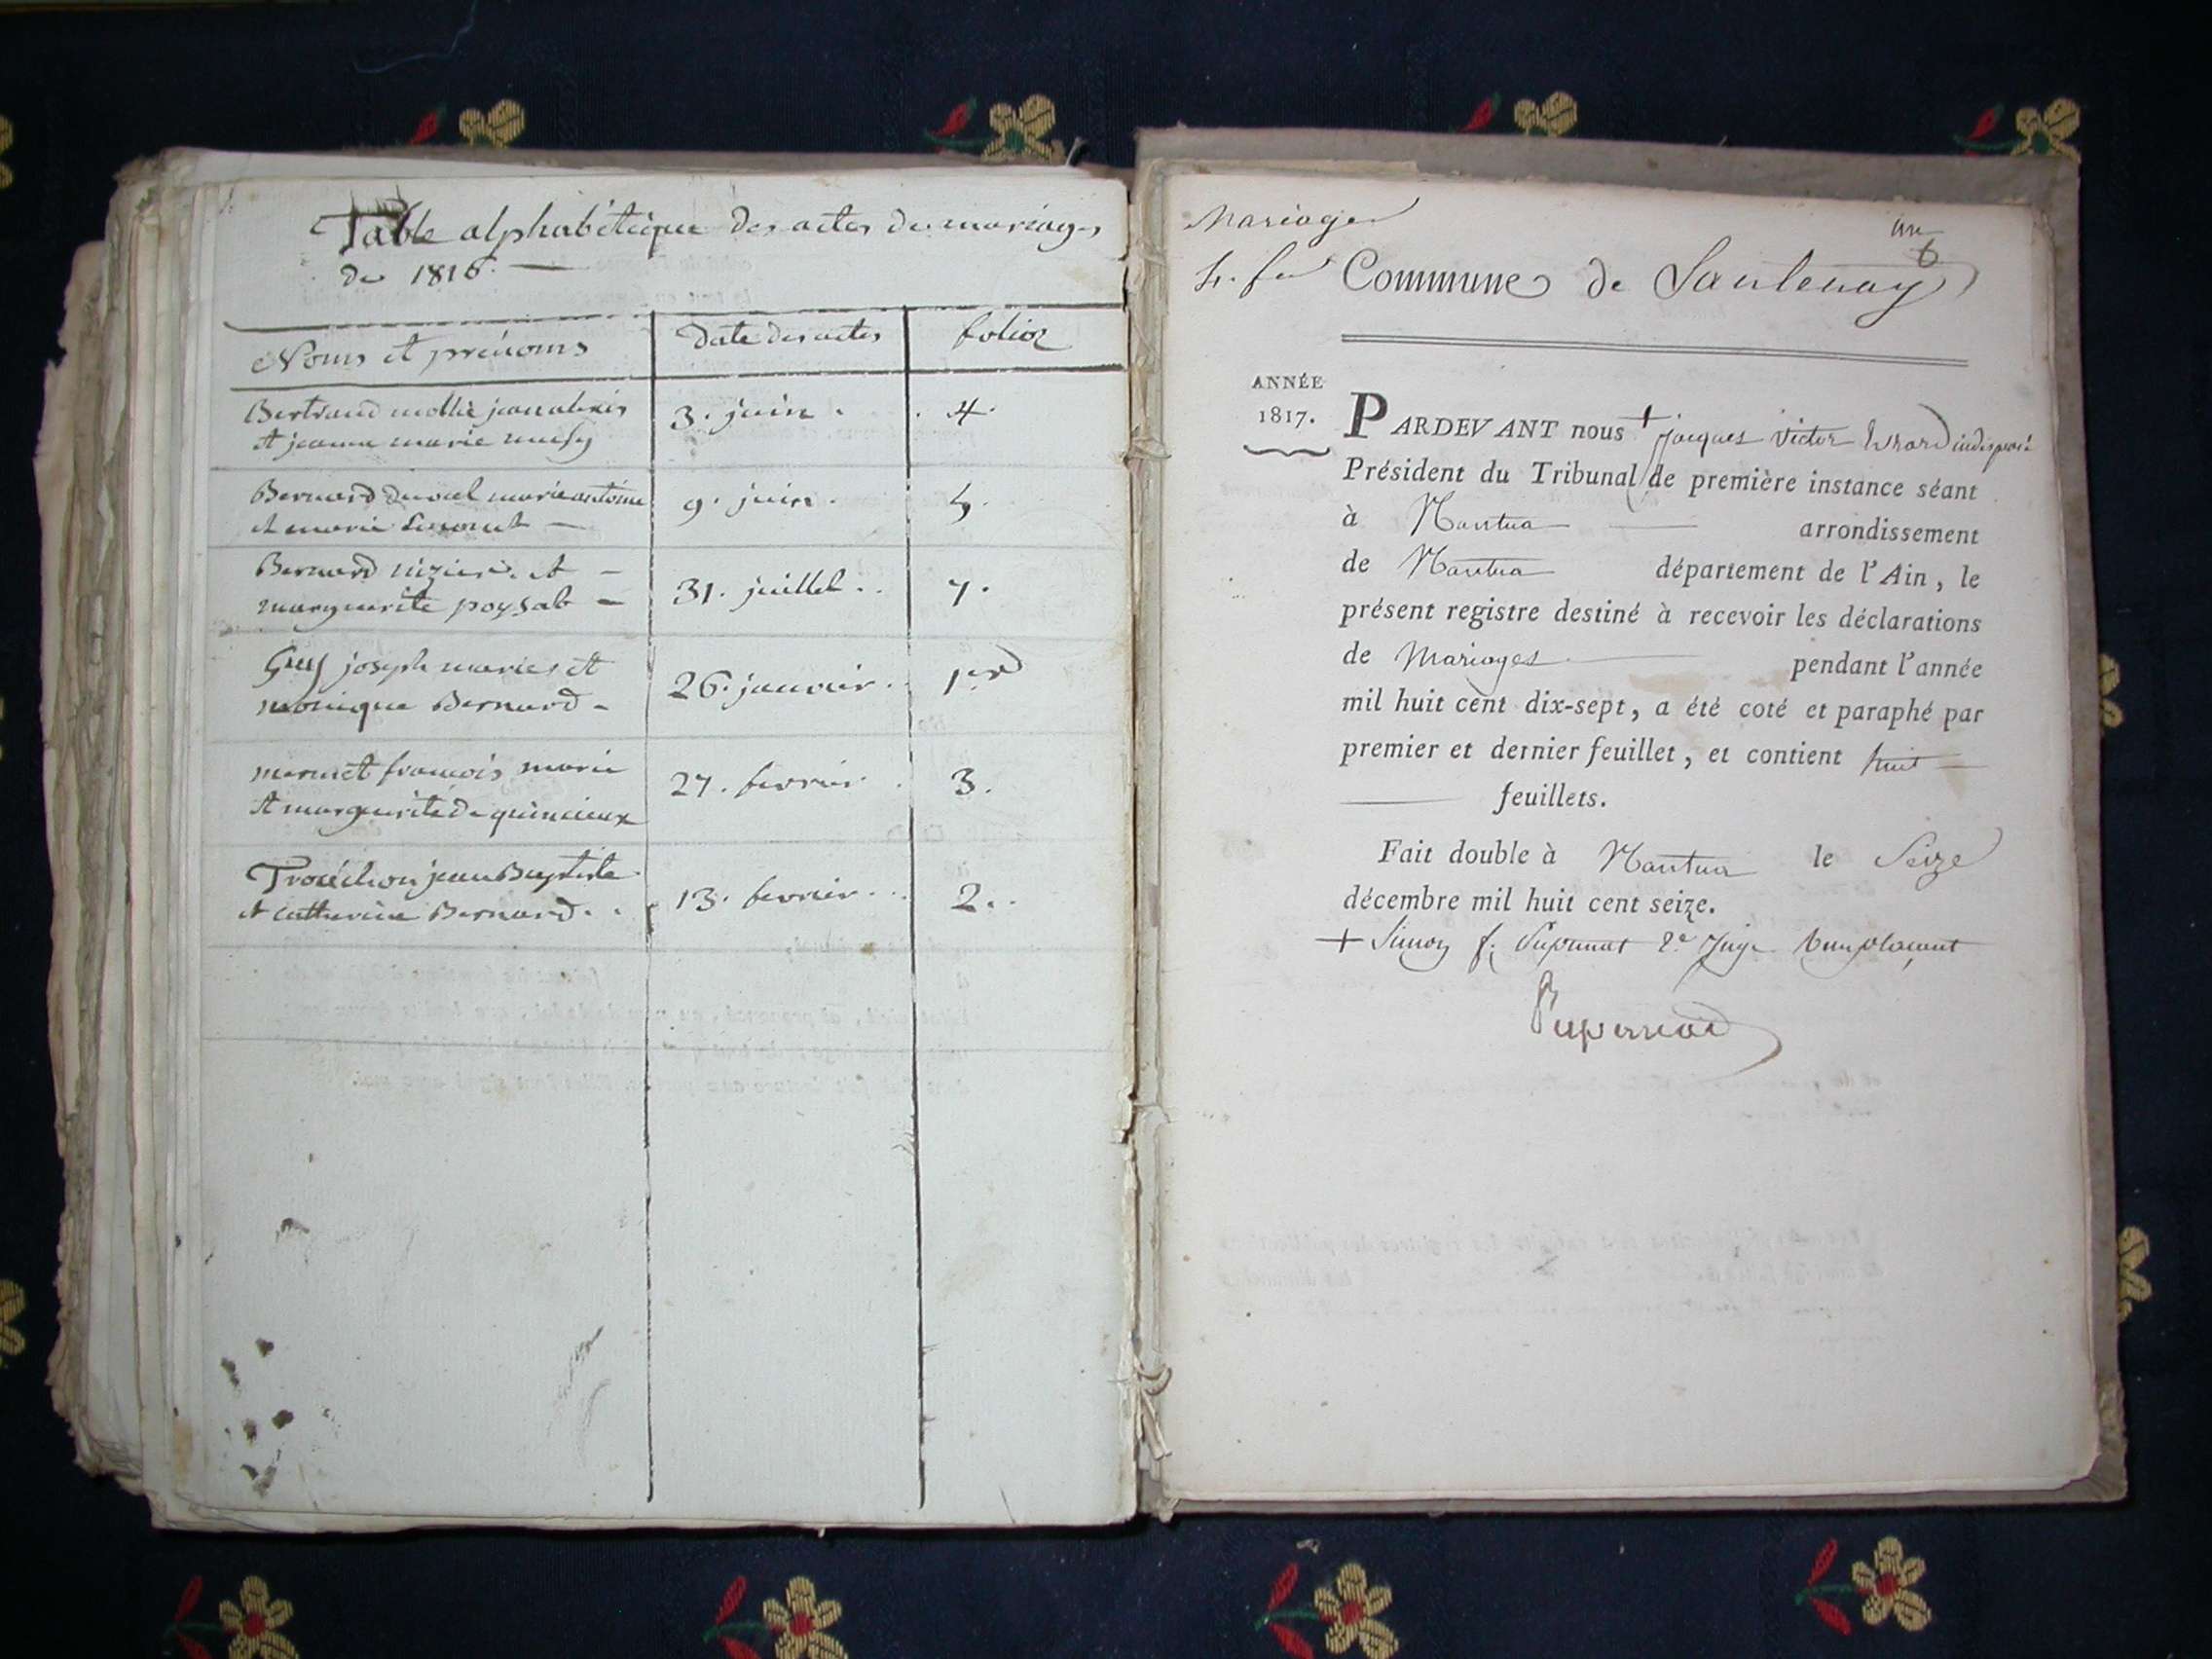 Table alphabétique des actes de mariages
de 1816.
Noms et prénoms
date des actes
folios
Bertrand mollie jean alexis
et jeanne marie
3. juin.
4.
Bernard marie antoine
et marie
9. juin.
5.
Bernard nizier et
marguerite poysat
31. juillet..
7.
Guy joseph marie et
monique Bernard
26. janvier.
1er
mermet françois marie
et marguerite de quincieux
27. fevrier.
3.
Trouëchon jean Baptiste
et catherine Bernard..
13. fevrier..
2..
Mariages
4. fet
un
Commune de
ANNÉE
1817.
PARDEVANT nous + Jacques Victor indisposé
Président du Tribunal de première instance séant
à Nantua arrondissement
de Nantua département de l'Ain, le
présent registre destiné à recevoir les déclarations
de Mariages pendant l'année
mil huit cent dix-sept, a été coté et paraphé par
premier et dernier feuillet, et contient huit
feuillets.
Fait double à Nantua le Seize
décembre mil huit cent seize.
+ Simon f. 2e Juge Remplaçant